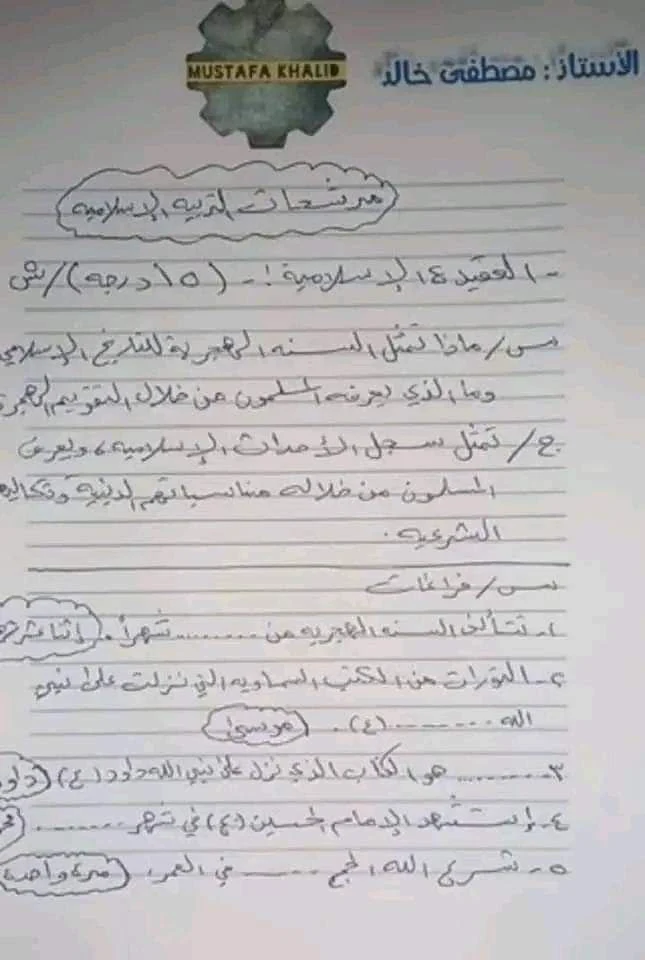 الأستاذ : مصطفى خالد
MUSTAFA KHALID
مرشحات التربيه الإسلاميه
- العقيدة الإسلامية :- (١٥ درجه) / ش
س/ ماذا تمثل السنه الهجرية للتاريخ الإسلامي
وما الذي يعرفه المسلمون من خلال التقويم الهجري
ج/ تمثل سجل الأحداث الإسلاميه، ويعرف
المسلمون من خلاله مناسباتهم الدينيه
الشرعيه.
س/ فراغات
١- تتألف السنه الهجريه من ......... شهراً. إثنا عشر
٢- التورات من الكتب السماويه التي نزلت على نبي
الله ......... (ع). موسى
٣- ......... هو الكتاب الذي نزل على نبي الله داود (ع)
٤- إستشهد الإمام الحسين (ع) في شهر .........
٥- شرع الله الحج ......... في العمر. مرة واحدة